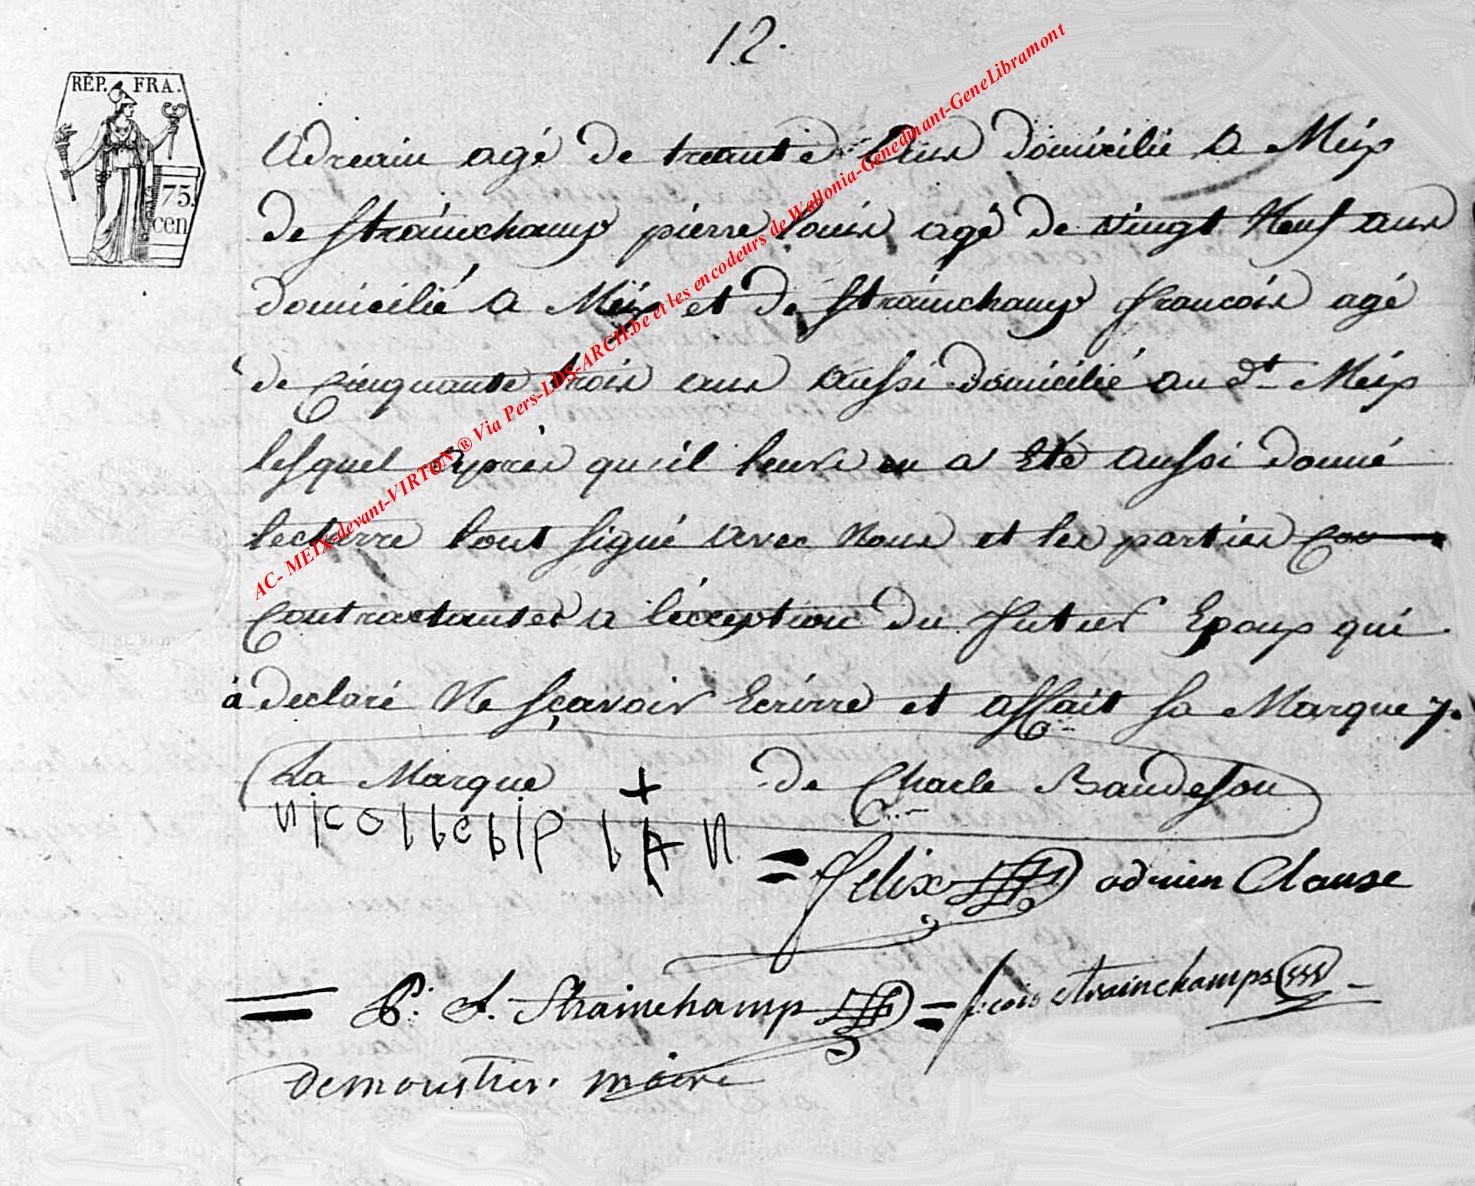 12.
RÉP. FRA.
75.
cen
Adreain agé de treante ans domicilié a Meix
de Strainchamp pierre louis agé de vingt Neuf ans
domicilié a Meix et de Strainchamp francois agé
de Cinquante trois ans aussi domicilié au dt Meix
lesquel aprés qu'il leurs en a Eté aussi donné
lecturre l'ont signé avec Nous et les parties Con
Contractantes a l'éxception du futur Epoux qui
à declaré Ne sçavoir Ecrirre et affait sa Marque
La Marque + de Charle Baudeson
= felix adrien Clause
= P. L. Strainchamp = f:cois strainchamps
demoustier. maire
AC- MEIX-devant-VIRTON ® Via Pers-LDS-ARCH.be et les encodeurs de Wallonia-Genedinant-GeneLibramont